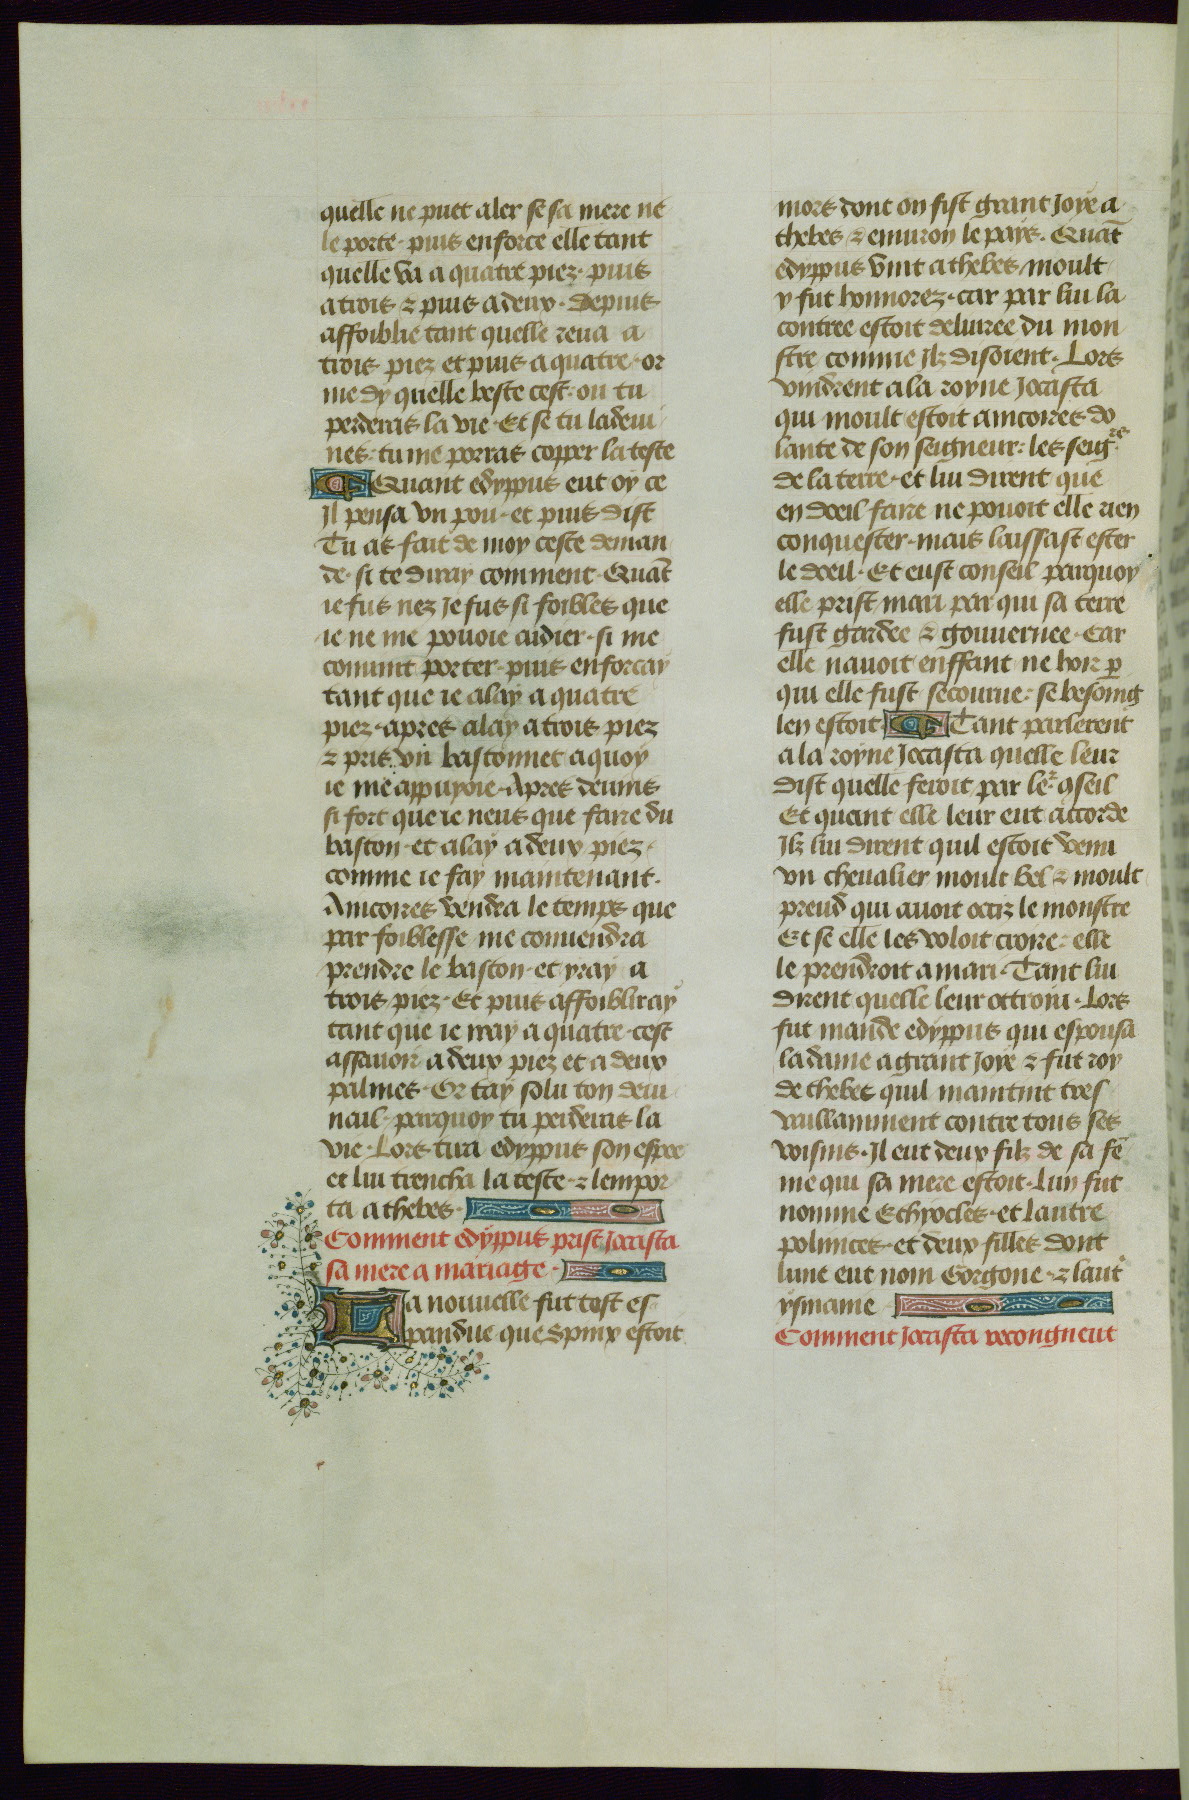 quelle ne puet aler se sa mere ne
le porte · puis enforce elle tant
quelle va a quatre piez · puis
a trois ⁊ puis a deux · Depuis
affoiblie tant quelle reua a
trois piez et puis a quatre · or
me dy quelle beste cest · ou tu
perderas la vie · Et se tu ladeui
nes · tu me porras copper la teste
Quant edyppus eut oy ce
Il pensa vn pou · et puis dist
Tu as fait de moy ceste deman
de · si te diray comment · Quāt
ie fus nez Je fus si foibles que
ie ne me pouoie aidier · si me
conuint porter · puis enforcay
tant que ie alay a quatre
piez · apres alay a trois piez
⁊ pris vn bastonnet a quoy
ie me appuyoie · Apres deuins
si fort que ie neus que faire du
baston · et alay a deux piez ·
comme ie fay maintenant ·
Aincores vendra le temps que
par foiblesse me conuendra
prendre le baston · et yray a
trois piez · Et puis affoibliray
tant que ie iray a quatre · cest
assauoir a deux piez et a deux
palmes · Or tay solu ton deui
nail · parquoy tu perderas la
vie · Lors tira edyppus son espee
et lui trencha la teste · ⁊ lempor
ta a thebes ·
Comment edyppus prist Jocasta
sa mere a mariage ·
La nouuelle fut tost es
pandue que Spinx estoit
mors dont on fist grant Joye a
thebes ⁊ enuiron le pays · Quāt
edyppus vint a thebes moult
y fut honnorez · car par lui la
contree estoit deliuree du mon
stre comme Jlz disoient · Lors
vindrent a la royne Jocasta
qui moult estoit aincores do
lante de son seigneur · les seigrs
de la terre · et lui dirent que
en doeil faire ne pouoit elle rien
conquester · mais laissast ester
le doeil · Et eust conseil parquoy
elle prist mari par qui sa terre
fust gardee ⁊ gouuernee · Car
elle nauoit enffant ne hoir ꝑ
qui elle fust secourue · se besoing
len estoit Tant parlerent
a la royne Jocasta quelle leur
dist quelle feroit par ler ꝯseil
Et quant elle leur eut accorde
Jlz lui dirent quil estoit venu
vn cheualier moult bel ⁊ moult
preud qui auoit occiz le monstre
Et se elle les voloit croire · elle
le prendroit a mari · Tant lui
dirent quelle leur ottroia · Lors
fut mande edyppus qui espousa
la dame a grant Joye ⁊ fut roy
de thebes quil maintint tres
vaillamment contre tous ses
voisins · Il eut deux filz de sa fē
me qui sa mere estoit · lun fut
nomme Ethyocles · et lautre
polinices · et deux filles dont
lune eut nom Gorgone · ⁊ laut
ysmaine
Comment Jocasta recongneut